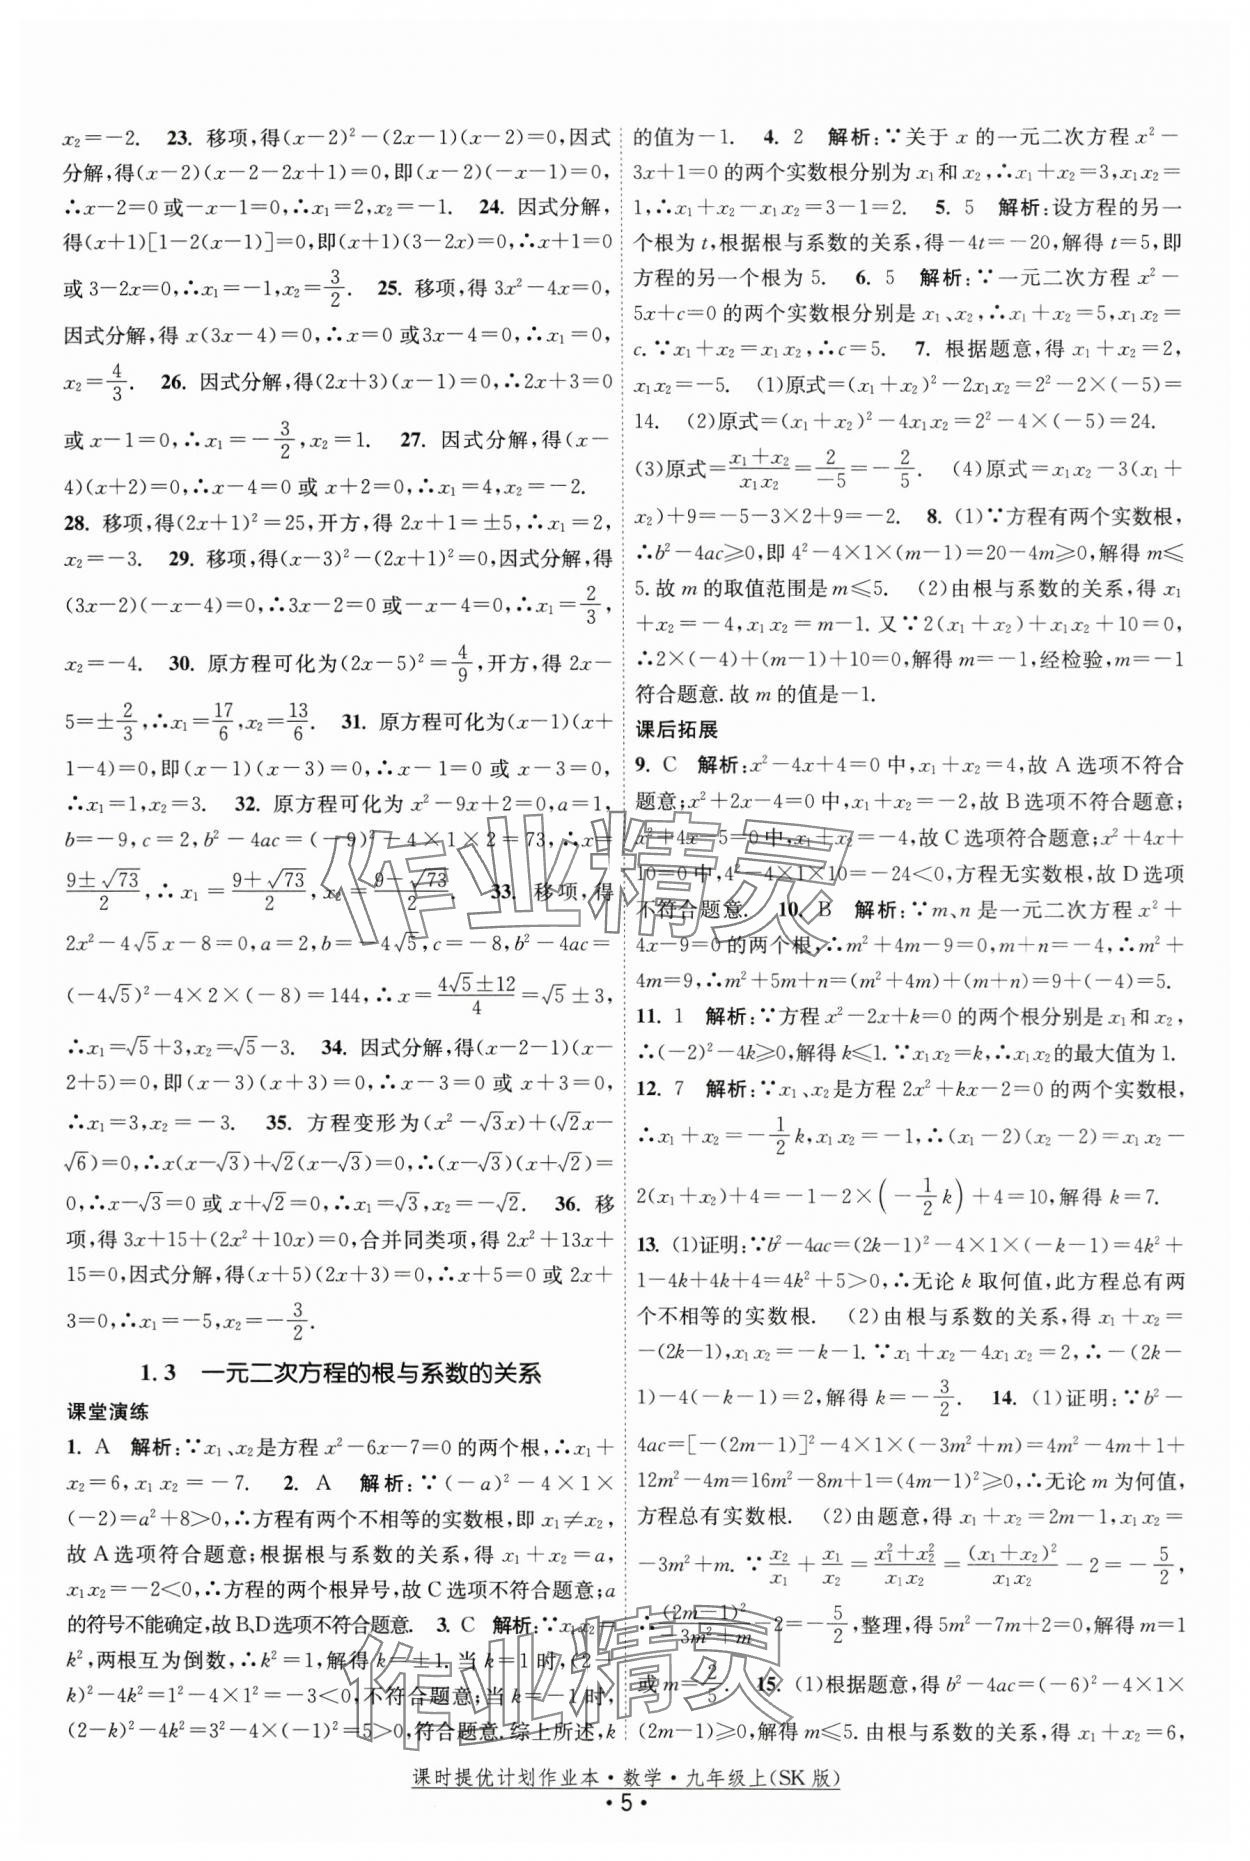 x₂=-2. 23. 移项,得(x-2)²-(2x-1)(x-2)=0,因式
分解,得(x-2)(x-2-2x+1)=0,即(x-2)(-x-1)=0,
∴x-2=0 或-x-1=0,∴x₁=2,x₂=-1. 24. 因式分解,
得(x+1)[1-2(x-1)]=0,即(x+1)(3-2x)=0,∴x+1=0
或 3-2x=0,∴x₁=-1,x₂=3/2. 25. 移项,得 3x²-4x=0,
因式分解,得 x(3x-4)=0,∴x=0 或3x-4=0,∴x₁=0,
x₂=4/3. 26. 因式分解,得(2x+3)(x-1)=0,∴2x+3=0
或 x-1=0,∴x₁=-3/2,x₂=1. 27. 因式分解,得(x-
4)(x+2)=0,∴x-4=0 或 x+2=0,∴x₁=4,x₂=-2.
28. 移项,得(2x+1)²=25,开方,得 2x+1=±5,∴x₁=2,
x₂=-3. 29. 移项,得(x-3)²-(2x+1)²=0,因式分解,得
(3x-2)(-x-4)=0,∴3x-2=0 或-x-4=0,∴x₁=2/3,
x₂=-4. 30. 原方程可化为(2x-5)²=4/9,开方,得 2x-
5=±2/3,∴x₁=17/6,x₂=13/6. 31. 原方程可化为(x-1)(x+
1-4)=0,即(x-1)(x-3)=0,∴x-1=0 或 x-3=0,
∴x₁=1,x₂=3. 32. 原方程可化为 x²-9x+2=0,a=1,
b=-9,c=2,b²-4ac=(-9)²-4×1×2=73,∴x=
(9±√73)/2,∴x₁=(9+√73)/2,x₂=(9-√73)/2. 33. 移项,得
2x²-4√5x-8=0,a=2,b=-4√5,c=-8,b²-4ac=
(-4√5)²-4×2×(-8)=144,∴x=(4√5±12)/4=√5±3,
∴x₁=√5+3,x₂=√5-3. 34. 因式分解,得(x-2-1)(x-
2+5)=0,即(x-3)(x+3)=0,∴x-3=0 或 x+3=0,
∴x₁=3,x₂=-3. 35. 方程变形为(x²-√3x)+(√2x-
√6)=0,∴x(x-√3)+√2(x-√3)=0,∴(x-√3)(x+√2)=
0,∴x-√3=0 或 x+√2=0,∴x₁=√3,x₂=-√2. 36. 移
项,得 3x+15+(2x²+10x)=0,合并同类项,得 2x²+13x+
15=0,因式分解,得(x+5)(2x+3)=0,∴x+5=0 或 2x+
3=0,∴x₁=-5,x₂=-3/2.
1.3 一元二次方程的根与系数的关系
课堂演练
1. A 解析:∵x₁、x₂是方程 x²-6x-7=0 的两个根,∴x₁+
x₂=6,x₁x₂=-7. 2. A 解析:∵(-a)²-4×1×
(-2)=a²+8>0,∴方程有两个不相等的实数根,即 x₁≠x₂,
故 A 选项符合题意;根据根与系数的关系,得 x₁+x₂=a,
x₁x₂=-2<0,∴方程的两个根异号,故 C 选项不符合题意;a
的符号不能确定,故 B、D 选项不符合题意. 3. C 解析:∵x₁x₂=
k²,两根互为倒数,∴k²=1,解得 k=±1. 当 k=1 时,(2+
k)²-4k²=1²-4×1²=-3<0,不符合题意;当 k=-1 时,
(2-k)²-4k²=3²-4×(-1)²=5>0,符合题意.综上所述,k
的值为-1. 4. 2 解析:∵关于 x 的一元二次方程 x²-
3x+1=0 的两个实数根分别为 x₁和 x₂,∴x₁+x₂=3,x₁x₂=
1,∴x₁+x₂-x₁x₂=3-1=2. 5. 5 解析:设方程的另一
个根为 t,根据根与系数的关系,得-4t=-20,解得 t=5,即
方程的另一个根为 5. 6. 5 解析:∵一元二次方程 x²-
5x+c=0 的两个实数根分别是 x₁、x₂,∴x₁+x₂=5,x₁x₂=
c.∵x₁+x₂=x₁x₂,∴c=5. 7. 根据题意,得 x₁+x₂=2,
x₁x₂=-5. (1)原式=(x₁+x₂)²-2x₁x₂=2²-2×(-5)=
14. (2)原式=(x₁+x₂)²-4x₁x₂=2²-4×(-5)=24.
(3)原式=(x₁+x₂)/(x₁x₂)=2/(-5)=-2/5. (4)原式=x₁x₂-3(x₁+
x₂)+9=-5-3×2+9=-2. 8. (1)∵方程有两个实数根,
∴b²-4ac≥0,即 4²-4×1×(m-1)=20-4m≥0,解得 m≤
5.故 m 的取值范围是 m≤5. (2)由根与系数的关系,得 x₁
+x₂=-4,x₁x₂=m-1. 又∵2(x₁+x₂)+x₁x₂+10=0,
∴2×(-4)+(m-1)+10=0,解得 m=-1,经检验,m=-1
符合题意.故 m 的值是-1.
课后拓展
9. C 解析:x²-4x+4=0 中,x₁+x₂=4,故 A 选项不符合
题意;x²+2x-4=0 中,x₁+x₂=-2,故 B 选项不符合题意;
x²+4x-5=0 中,x₁+x₂=-4,故 C 选项符合题意;x²+4x+
10=0 中,4²-4×1×10=-24<0,方程无实数根,故 D 选项
不符合题意. 10. B 解析:∵m、n 是一元二次方程 x²+
4x-9=0 的两个根,∴m²+4m-9=0,m+n=-4,∴m²+
4m=9,∴m²+5m+n=(m²+4m)+(m+n)=9+(-4)=5.
11. 1 解析:∵方程 x²-2x+k=0 的两个根分别是 x₁和 x₂,
∴(-2)²-4k≥0,解得 k≤1.∵x₁x₂=k,∴x₁x₂的最大值为 1.
12. 7 解析:∵x₁、x₂是方程 2x²+kx-2=0 的两个实数根,
∴x₁+x₂=-1/2k,x₁x₂=-1,∴(x₁-2)(x₂-2)=x₁x₂-
2(x₁+x₂)+4=-1-2×(-1/2k)+4=10,解得 k=7.
13. (1)证明:∵b²-4ac=(2k-1)²-4×1×(-k-1)=4k²+
1-4k+4k+4=4k²+5>0,∴无论 k 取何值,此方程总有两
个不相等的实数根. (2)由根与系数的关系,得 x₁+x₂=
-(2k-1),x₁x₂=-k-1.∵x₁+x₂-4x₁x₂=2,∴-(2k-
1)-4(-k-1)=2,解得 k=-3/2. 14. (1)证明:∵b²-
4ac=[-(2m-1)]²-4×1×(-3m²+m)=4m²-4m+1+
12m²-4m=16m²-8m+1=(4m-1)²≥0,∴无论 m 为何值,
方程总有实数根. (2)由题意,得 x₁+x₂=2m-1,x₁x₂=
-3m²+m. ∵x₂/x₁+x₁/x₂=(x₁²+x₂²)/(x₁x₂)=(x₁+x₂)²/(x₁x₂)-2=-5/2,
∴(2m-1)²/(-3m²+m)-2=-5/2,整理,得 5m²-7m+2=0,解得 m=1
或 m=2/5. 15. (1)根据题意,得 b²-4ac=(-6)²-4×1×
(2m-1)≥0,解得 m≤5. 由根与系数的关系,得 x₁+x₂=6,
作业精灵
作业精灵
课时提优计划作业本·数学·九年级上(SK 版)
·5·